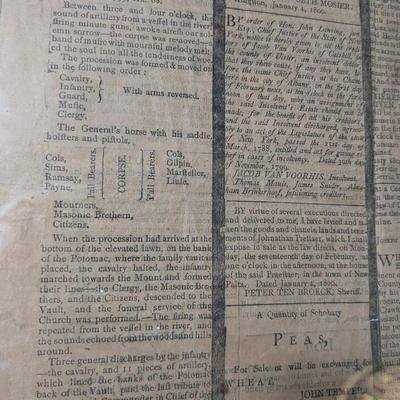 Between three and four o'clock, the
sound of artillery from a vessel in the river,
firing minute guns, awoke afresh our sol-
emn sorrow—the corpse was removed—a
band of music with mournful melody melt-
ed the soul into all the tenderness of woe.
The procession was formed & moved on
in the following order:
Cavalry,
Infantry,
Guard,
Music,
Clergy,
With arms reversed.
The General's horse with his saddle,
holsters and pistols,
Cols,
Sims,
Ramsay,
Payne,
Pall Bearers.
CORPSE.
Pall Bearers.
Cols,
Gilpin,
Marsteller,
Little,
Mourners,
Masonic Brethern,
Citizens.
When the procession had arrived at the
bottom of the elevated lawn, on the bank
of the Potomac, where the family vault is
placed, the cavalry halted, the infantry
marched towards the Mount and formed
their lines—the Clergy, the Masonic Bro-
thers, and the Citizens, descended to the
Vault, and the funeral service of the
Church was performed.—The firing was
repeated from the vessel in the river, and
the sounds echoed from the woods and hills
around.
Three general discharges by the infantry
—the cavalry, and 11 pieces of artillery,
which lined the banks of the Potomac
back of the Vault, paid the last tribute to
Commander in Chief of the
ETH MOSHER.
January 4, 1800.
BY order of Hon. John
Esq. Justice of the
of Jacob Van Voorhis of
county of Ulster, an insolvent debtor
fore the same Chief Justice, at
bers in the city of Albany, on the first day
of February next, at ten o'clock in the fore
noon of that day, why an assignment of
the said Insolvent's Estate should not be
made, for the benefit of all his creditors
and he said Insolvent discharged, agreea-
bly to an act of the Legislature of the state
of New York, passed the 21st day of
March, 1788, entitled an act for giving re-
lief in cases of insolvency. Dated 30th day
of November, 1799.
JACOB VAN VOORHIS, Insolvent.
Thomas Maule, James Snider,
Brinkerhoof, petitioning creditors.
BY virtue of several executions directed
and delivered to me, I have levied and ta-
ken the goods and chattels, lands and tene-
ments of Johnathan Presler, which I shall
expose to sale as the law directs, on Mon-
day, the seventeenth day of February, at
one o'clock in the afternoon, at the house
of the said Presler; in the town of New
Paltz. Dated January 1, 1800.
PETER TEN BROECK, Sheriff.
A Quantity of Schohary
PEAS,
For Sale or will be exchanged for
WHEAT,
JOHN